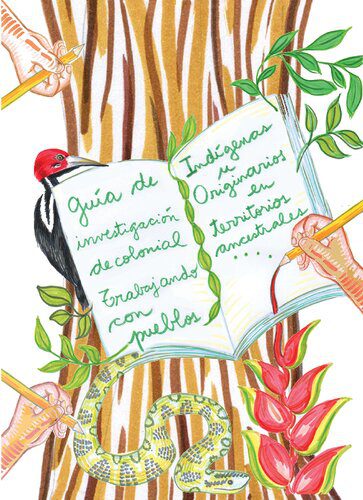 Guía de
investigación
decolonial
Trabajando
con
pueblos
Indígenas
u
Originarios
en
territorios
ancestrales
....